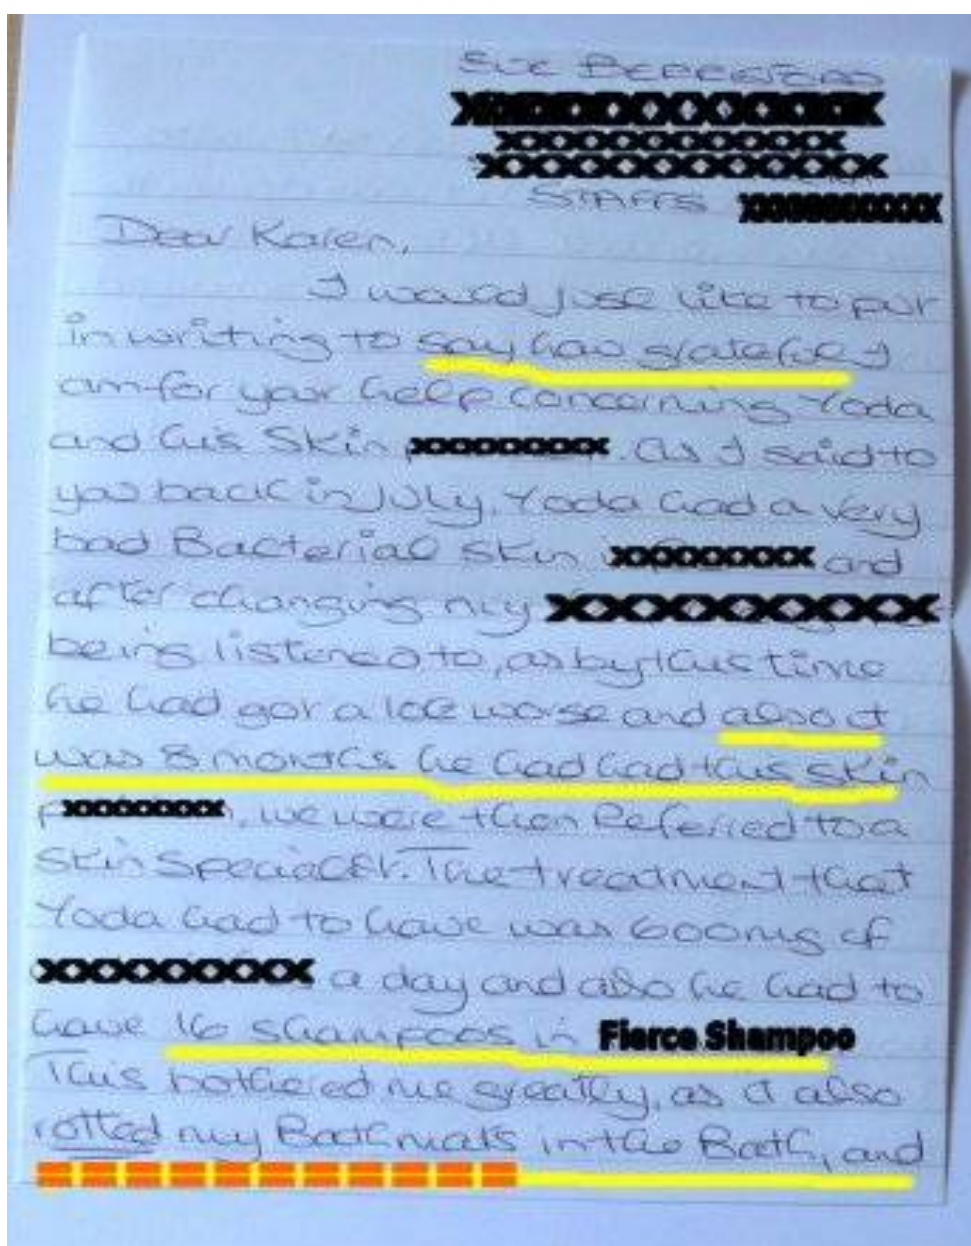 Sue Berresford
STAFFS
Dear Karen,
I would just like to put
in writing to say how grateful I
am for your help concerning Yoda
and his Skin . As I said to
you back in July, Yoda had a very
bad Bacterial Skin and
after changing my
being listened to, as by this time
he had got a lot worse and also it
was 8 months he had had this skin
, we were then Referred to a
Skin Specialist. The treatment that
Yoda had to have was 600mg of
a day and also he had to
have 16 shampoos in Fierce Shampoo
This bothered me greatly, as it also
rotted my Bathmats in the Bath, and